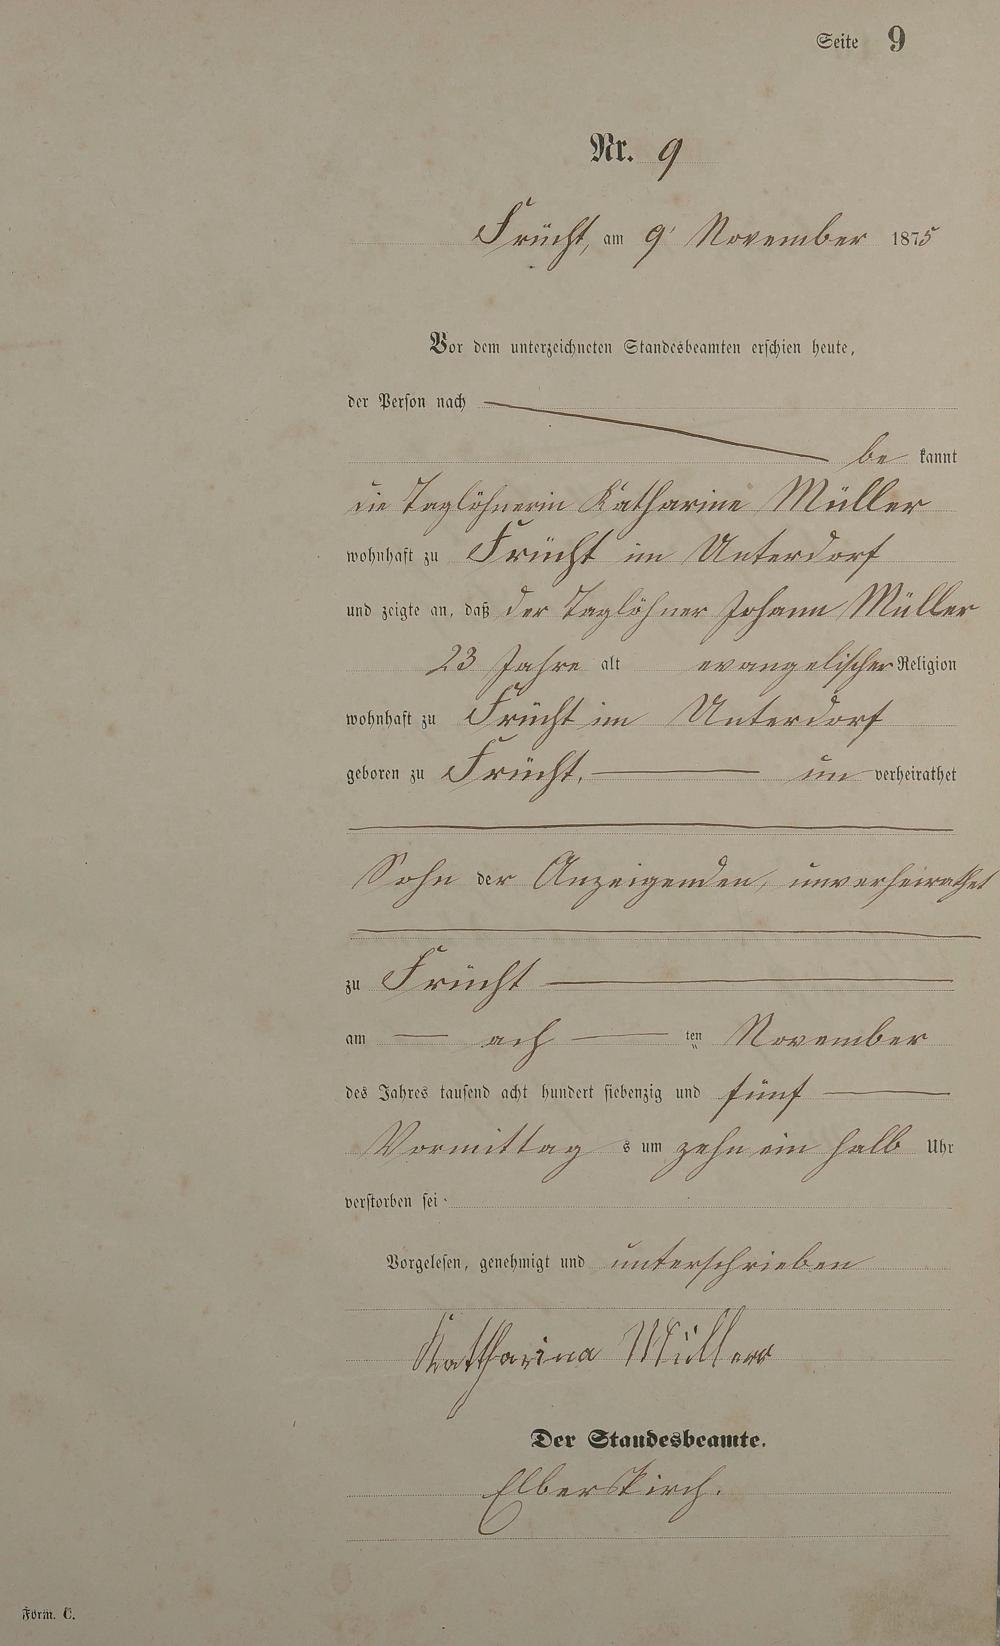 Seite 9
Nr. 9
Frücht, am 9' November 1875
Vor dem unterzeichneten Standesbeamten erschien heute,
der Person nach
be kannt
die Taglöhnerin Katharine Müller
wohnhaft zu Frücht im Unterdorf
und zeigte an, daß der Taglöhner Johann Müller
23 Jahre alt evangelischer Religion
wohnhaft zu Frücht im Unterdorf
geboren zu Frücht. un verheirathet
Sohn der Anzeigenden, unverheirathet
zu Frücht
am ach ten November
des Jahres tausend acht hundert siebenzig und fünf
Vormittag s um zehn ein halb Uhr
verstorben sei.
Vorgelesen, genehmigt und unterschrieben
Katharina Müller
Der Standesbeamte.
Elberskirch.
Form. C.